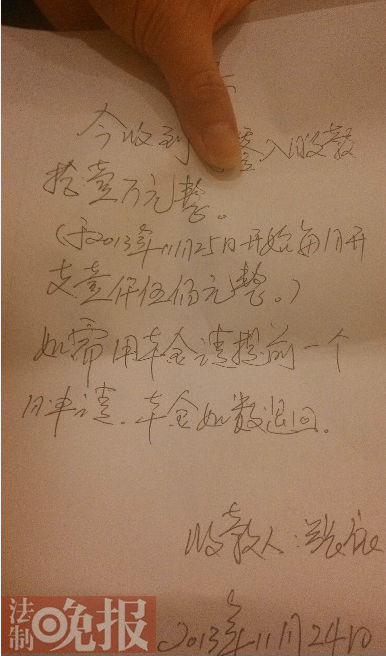 今收到 入股款
拾壹万元整。
(于2013年11月25日开始每月开
支壹仟伍佰元整。)
如需用本金请提前一个
月申请。本金如数退回。
收款人:
2013年11月24日
法制晚报